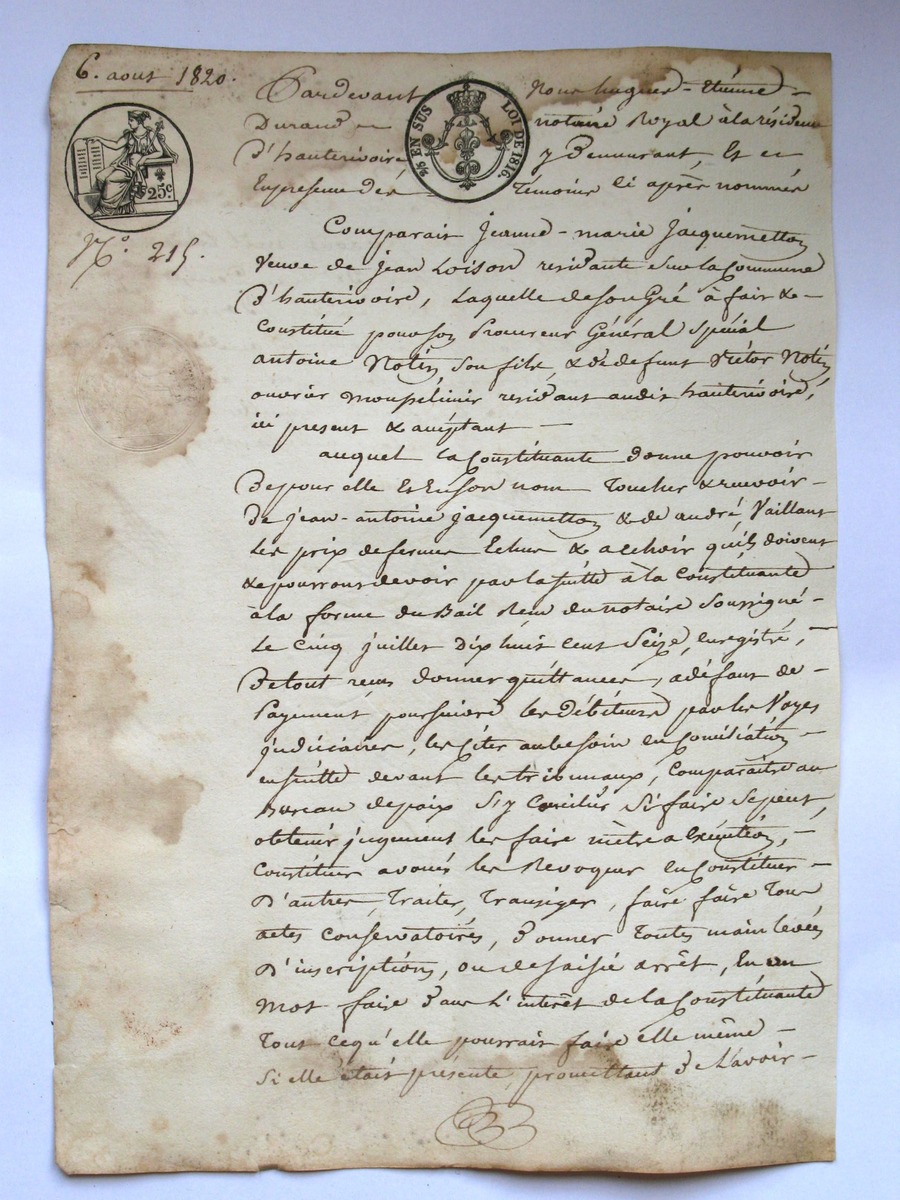 6. aout 1820.
25c.
N.o 215.
⅖ EN SUS LOI DE 1816.
Pardevant Nous hugues-Etienne
Durand notaire Royal à la résidence
D'hauterivoire y Demeurant, Et en
En presence des Témoins Ci après nommés
Comparait Jeanne-marie Jacquemetton
veuve de jean Loison residante sur la Commune
D'hauterivoire, Laquelle de son Gré à fait &
Constitué pour son Procureur Général spécial
antoine Notin son fils, & de defunt Victor Notin
ouvrier residant audit hauterivoire,
ici present & acceptant
auquel la Constituante donne pouvoir
De pour elle Et En son nom Toucher & recevoir
De jean-antoine jacquemetton & de andré Vaillant
Les prix de fermes Echus & a echoir quils doivent
& pourront devoir par la suitte à la Constituante
à la forme du Bail Reçu du notaire soussigné
Le Cinq juillet Dix huit cent Seize, enregistré,
De tout recu donner quittances, à défaut de
Payement poursuivre les Débiteurs par les Voyes
judiciaires, les Citer au besoin en Conciliation
ensuitte devant les tribunaux, Comparaitre au
Bureau de paix s'y Concilier Si faire Se peut,
obtenir jugement les faire mettre a Exécution,
Constituer avoués les Revoquer en Constituer
D'autres, Traiter, Transiger, faire faire Tous
actes Conservatoires, Donner Toutes main levées
D'inscriptions, ou de saisie arrêt, En un
Mot faire dans L'interêt de la Constituante
Tout ce qu'elle pourrait faire elle même
Si elle était présente, promettant de L'avoir